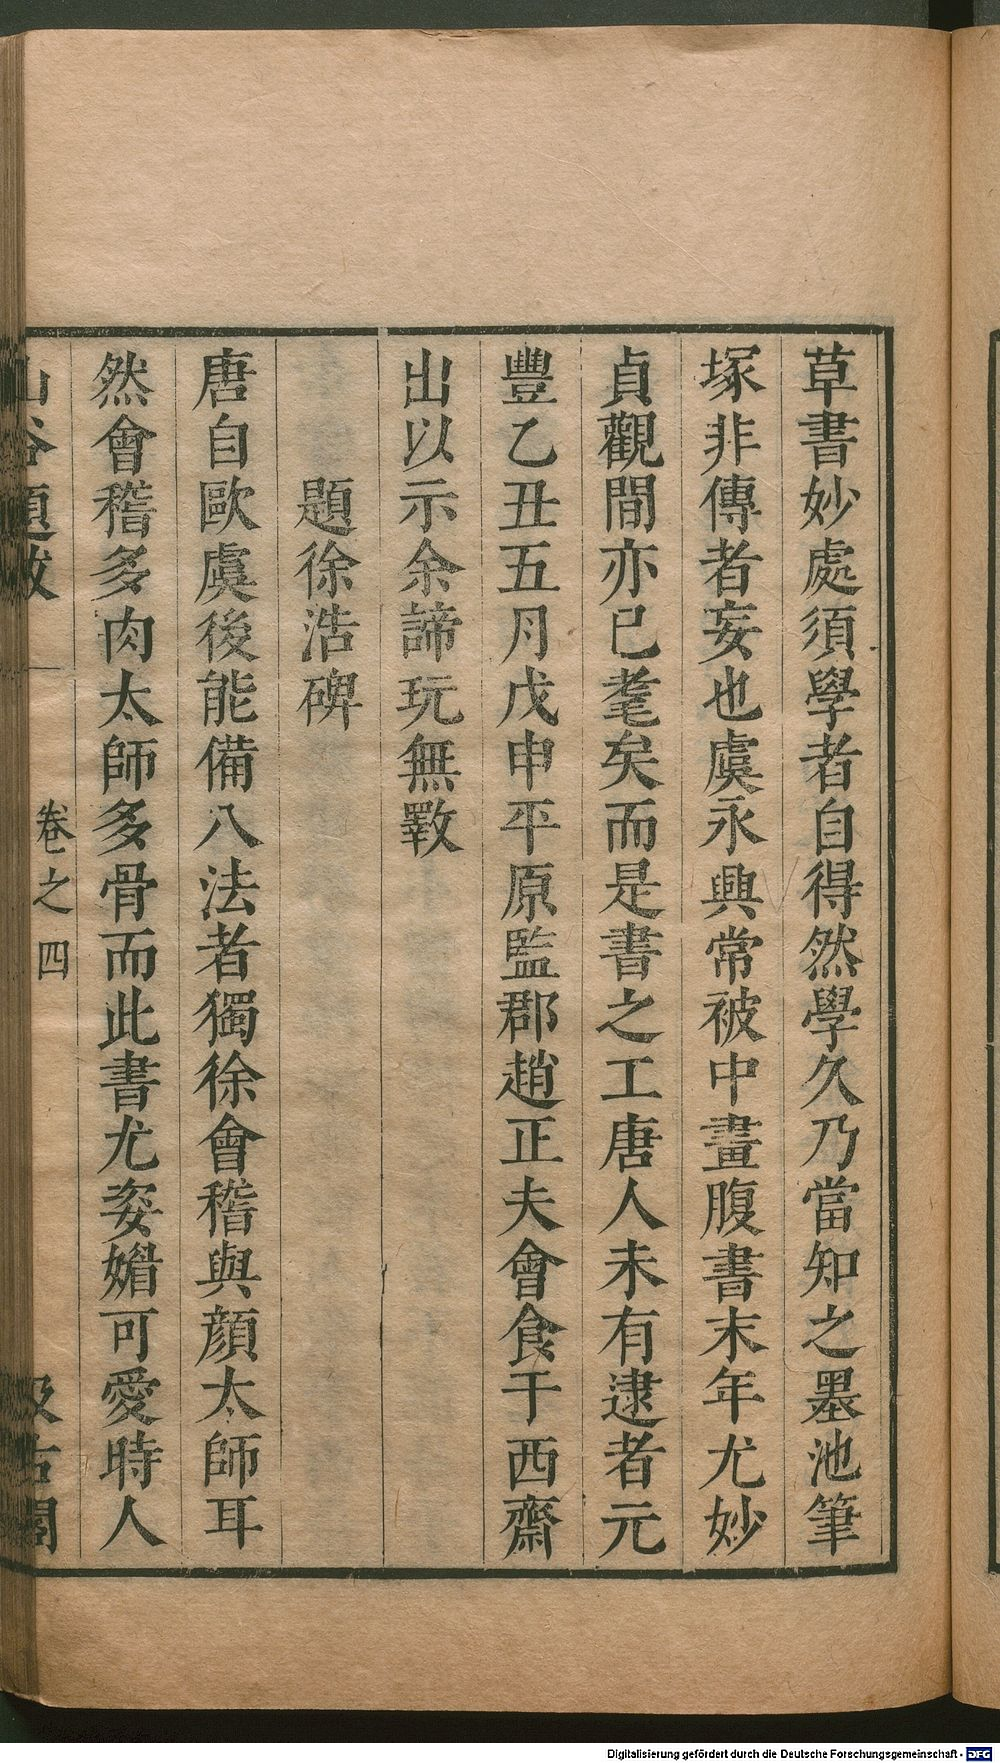 草書妙處須學者自得然學久乃當知之墨池筆
塚非傳者妄也虞永興常被中畫腹書末年尤妙
貞觀間亦已耄矣而是書之工唐人未有逮者元
豐乙丑五月戊申平原監郡趙正夫會食于西齋
出以示余諦玩無斁
題徐浩碑
唐自歐虞後能備八法者獨徐會稽與顔太師耳
然會稽多肉太師多骨而此書尤姿媚可愛時人
山谷題跋
卷之四
汲古閣
Digitalisierung gefördert durch die Deutsche Forschungsgemeinschaft - DFG